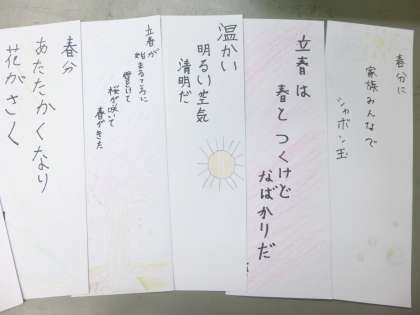 春分に
家族みんなで
シャボン玉
立春は
春とつくけど
なばかりだ
温かい
明るい空気
清明だ
立春が
始まるころに
雪とけて
桜が咲いて
春がきた
春分
あたたかくなり
花がさく